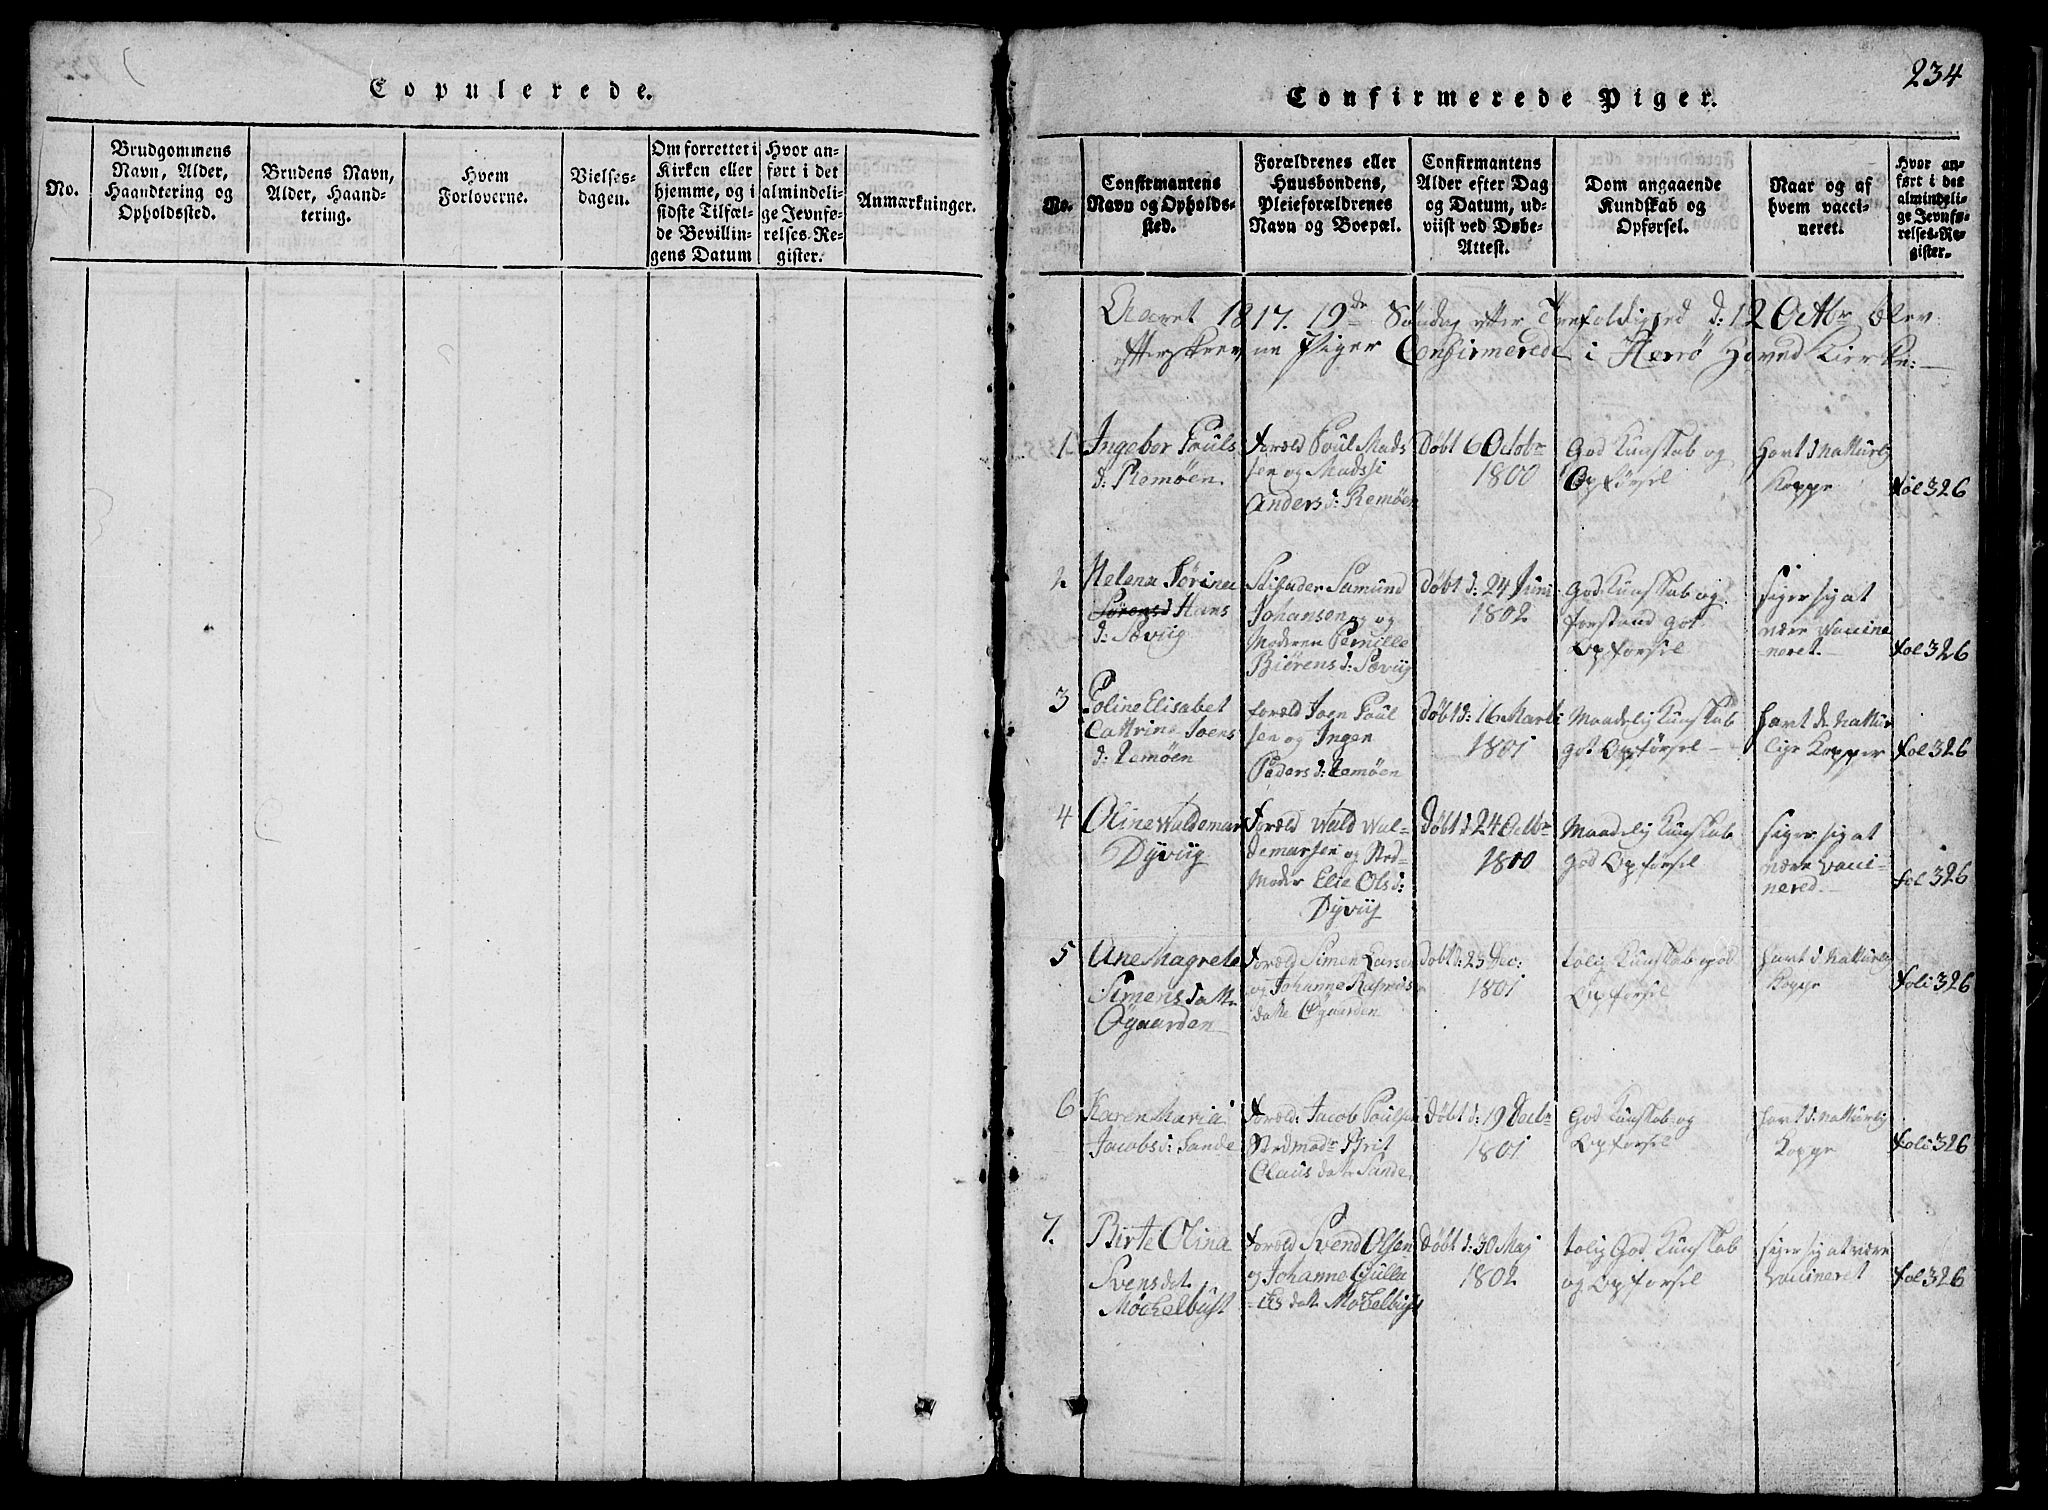 Copulerede.
No.
Brudgommens
Navn, Alder,
Haandtering og
Opholdssted.
Brudens Navn,
Alder, Haand-
tering.
Hvem
Forloverne.
Vielses-
dagen.
Om forrettet i
Kirken eller
hjemme, og i
sidste Tilfæl-
de Bevillin-
gens Datum
Hvor an-
ført i det
almindeli-
ge Jevnfø-
relses-Re-
gister.
Anmærkninger.
234
Confirmerede Piger.
No.
Confirmantens
Navn og Opholds-
sted.
Forældrenes eller
Huusbondens,
Pleieforældrenes
Navn og Boepæl.
Confirmantens
Alder efter Dag
og Datum, ud-
viist ved Døbe-
Attest.
Dom angaaende
Kundskab og
Opførsel.
Naar og af
hvem vacci-
neret.
Hvor an-
ført i det
almindeli-
ge Jevnfø-
relses-Re-
gister.
Aaret 1817. 19de Søndag etter Trefoldighed d: 12 Octbr blev
efterskrevne Piger Confirmerede i Herrø Hoved Kirke:
1
Ingebor Pouls
d: Remøen.
Foræld Poul Mads
sen og Madssi
Anders d: Remøen
Døbt 6 Octobr
1800
God Kunskab og
Opførsel
Havt d Natturlig
Koppe
fol 326
2
Helena Sørina
Sørensd Hans
d: Sævug
Stifader Samund
Johansen og
Moderen Pernille
Biørens d: Sævug
Døbt d: 24 Juni
1802
God Kunskab og
forstand got
Opførsel
Siger sig at
være Vaccine
neret.
fol 326
3
Poline Elisabet
Cattrine Joens
d: Remøen
foræld Joen Poul
sen og Ingen
Peders d: Remøen
Døbt d: 16 Marti
1801
Maadelig Kunskab
got Opførsel
havt de Nattur
lige Kopper
fol 326
4
Oline Waldemar
Dyvug
Foræld Wald Wal-
demarsen og Sted-
Moder Elie Ols d:
Dyvug
Døbt d: 24 Octbr
1800
Maadelig Kunskab
God Opførsel
Siger sig at
være Vacci-
nered
fol 326
5
Ane Magrete
Simens datte
Øgaarden
Foræld Simen Larsen
og Johanne Rasmus
datte Øgaarden
Døbt d: 23 Dec:
1801
tolig Kunskab god
Opførsel
havt d Natturlig
Koppe
foli 326
6
Karen Maria
Jacobs d: Sande
Foræld: Jacob Poulsen
Stedmodr Brit
Claus datte Sande.
Døbt d: 19 Octbr
1801
God Kunskab og
Opførsel
havt d: Natturlig
Koppe
foli 326
7.
Birte Olina
Svens dat
Møckelbust
Foræld Svend Olsen
og Johanne Gulla
datte Møckelbust
Døbt d: 30 Maj
1802
tolig God Kunskab
og Opførsel
siger sig at være
vaccineret
fol 326